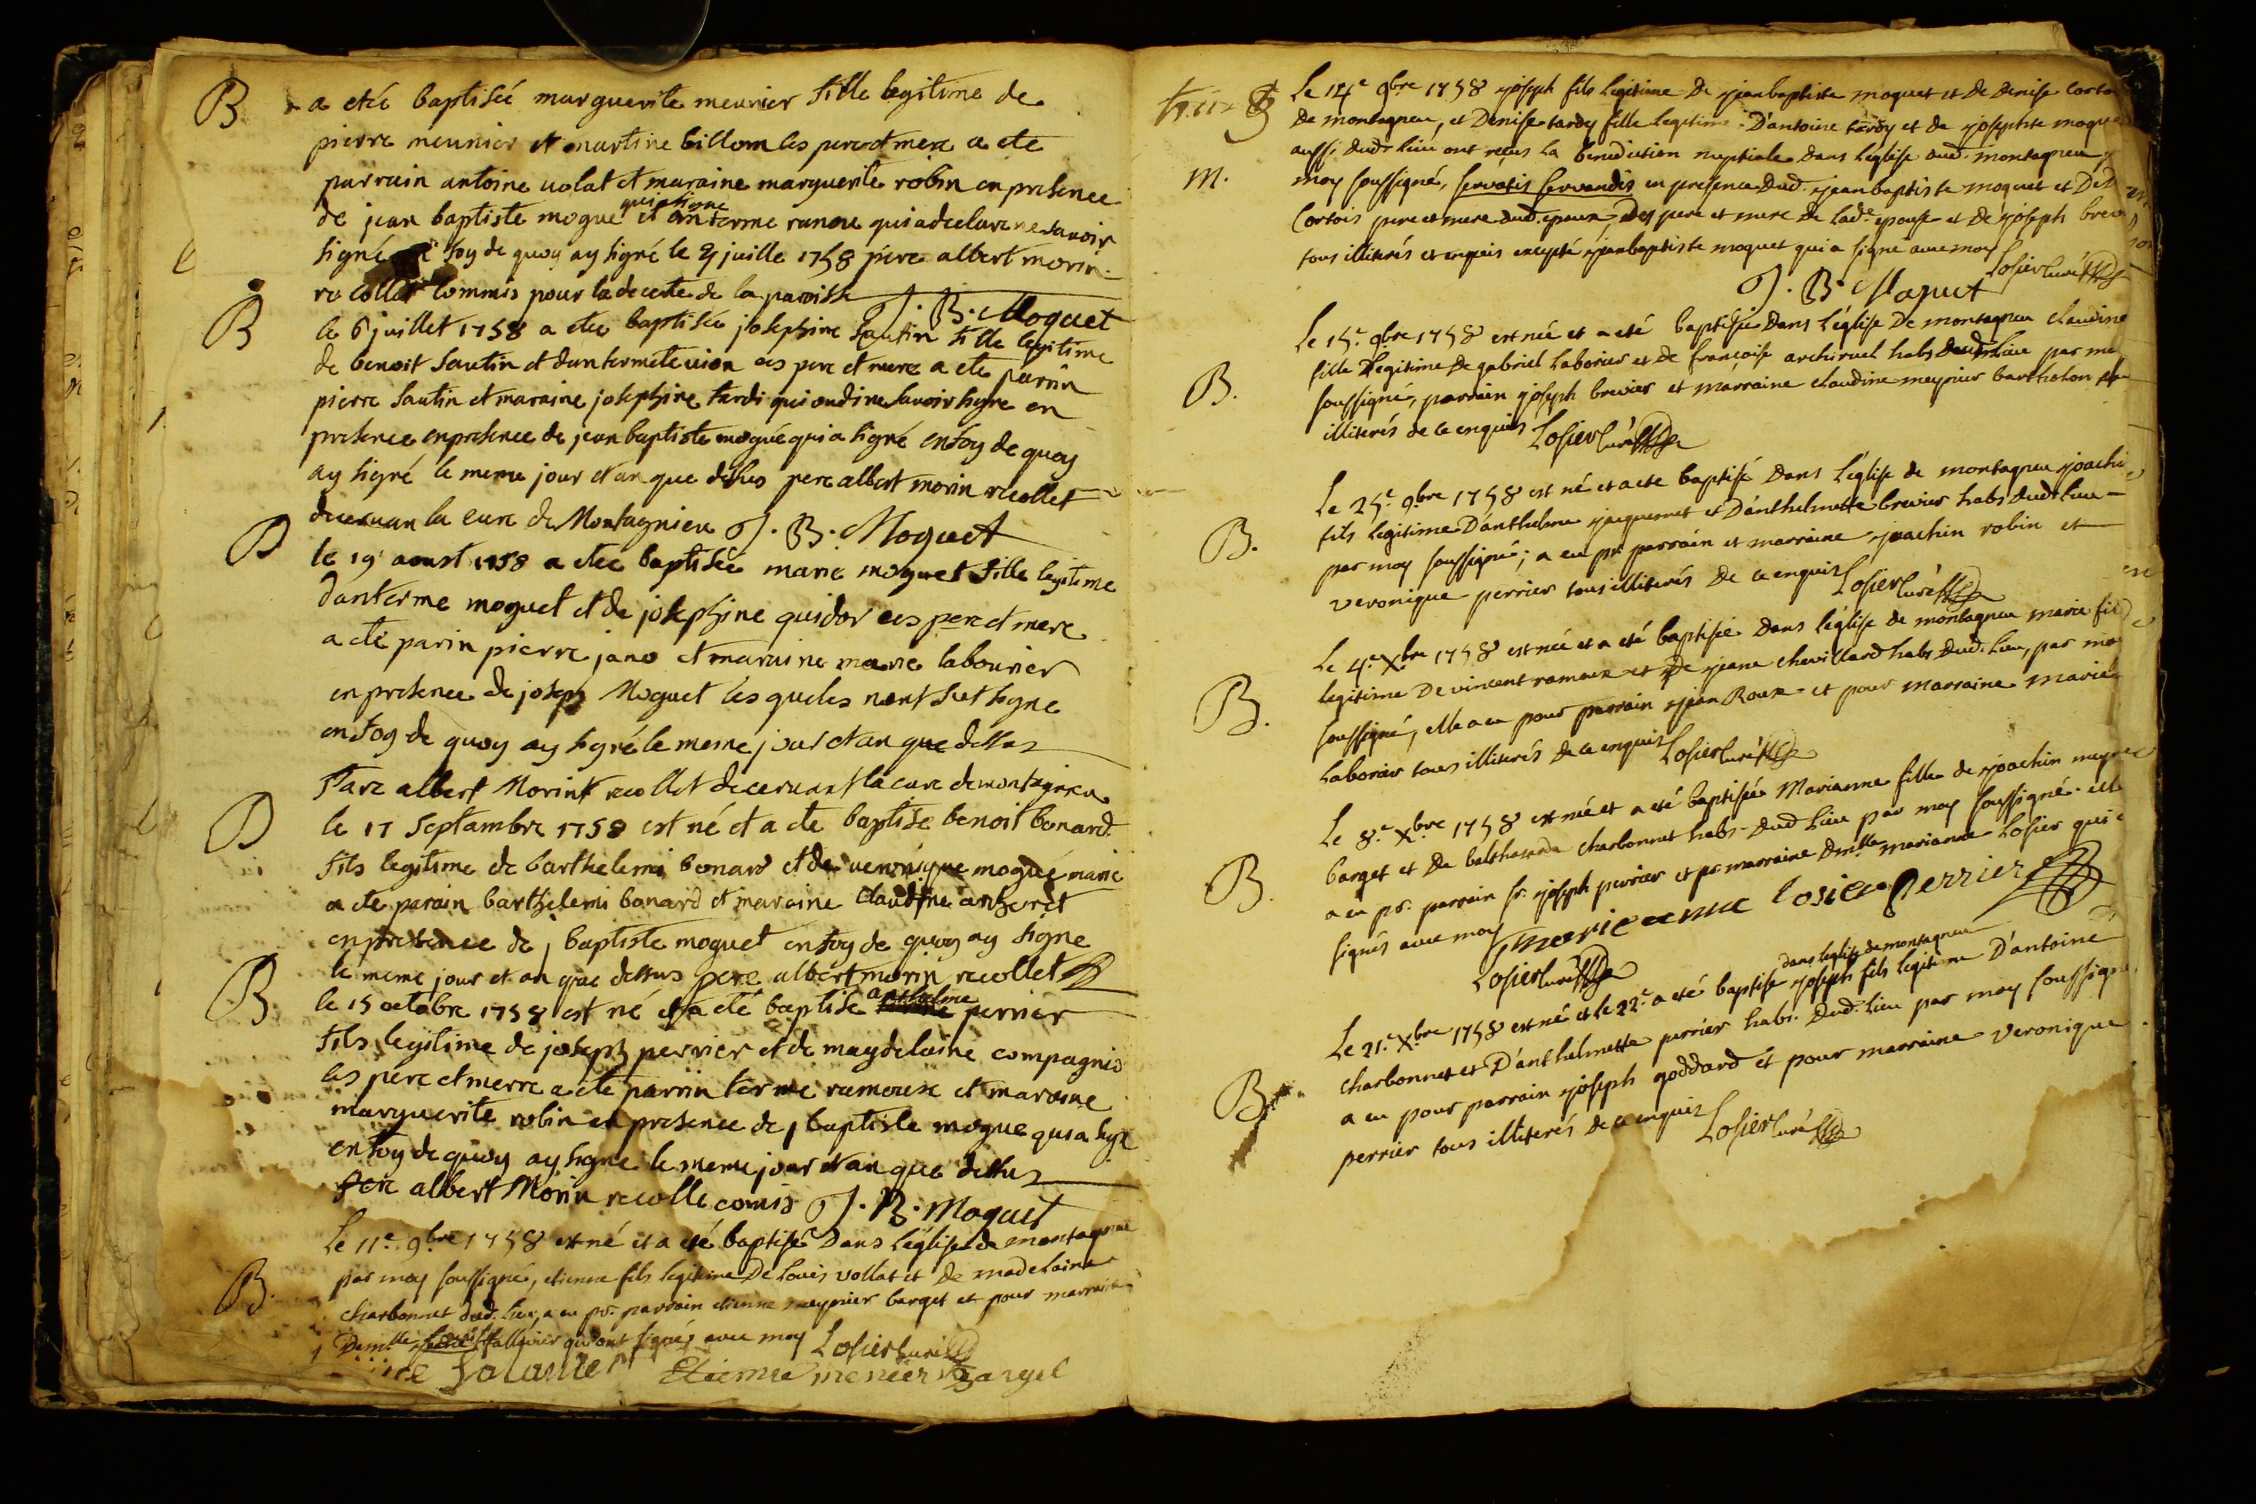 B a eteé baptiseé marguerite meunier fille legitime de
pierre meunier et martine billom les pere et mere a ete
parrain antoine volat et maraine marguerite robin en presence
de jean baptiste mogue qui a signe et anterme ramou qui a declare ne savoir
signé foy de quoy ay signé le juille 1758 pere albert morin
recollet commis pour la decerte de la paroisse J. B. Moquet
B le 6 juillet 1758 a eteé baptiseé josephine sautin fille legitime
de benoit sautin et dantermete uion ces pere et mere a ete parrin
pierre sautin et maraine josephine tardi qui ondine savoir signe en
presence en presence de jean baptiste mogué qui a signé en foy de quoy
ay signé le meme jour et an que dessus pere albert morin recollet
decervan la cure de Montagnieu J. B. Moquet
B le 19 aoust 1758 a eteé baptiseé marie moguet fille legitime
danterme moguet et de josephine quidor ces pere et mere
a ete parin pierre jano et maraine marie labourier
en presence de joseph Moguet les queles nont sut signe
en foy de quoy ay signé le meme jour et an que dessus
Pare albert Morin recollet decervant la cure de montagnieu
B le 17 septambre 1758 est né et a ete baptise benoit bonard
fils legitime de barthelemi bonard et de veronique mogué marie
a ete parain barthelemi bonard et maraine claudine antheret
en presence de j baptiste moguet en foy de quoy ay signe
le meme jour et an que dessus pere albert morin recollet
B le 15 octobre 1758 est né et a eté baptise anthelme perrier
fils legitime de joseph perrier et de maydelaine compagnio
les pere et merre a ete parrin terme ramoux et maraine
marguerite robin en presence de j baptiste mogue qui a signe
en foy de quoy ay signe le meme jour et an que dessus
Pere albert Morin recolle comis J. B. Moquet
Le 11e. 9bre 1758 est né et a eté baptisé Dans l'église de montagnieu
B. par moy soussigné, etienne fils legitime De Louis vollat et de madelaine
charbonnet dud. lieu, a eu pr. parrain etienne meynier barget et pour marraine
Demlle. qui ont signés avec moy Losier curé
Etienne menier Bargel
Le 14e 9bre 1758 joseph fils legitime De jeanbaptiste moquet et de Denise
De montagneu, et Denise tardy fille legitime D'antoine tardy et de josephte
aussi dudt lieu ont reçus la benediction nuptiale dans l'église dud. montagneu
m. moy soussigné, servatis servandis en presence dud. jeanbaptiste moquet et
Cortois pere et mere dud. epoux, Des pere et mere de lade. epouse et de joseph
tous illiterés et enquis excepté jeanbaptiste moquet qui a signé avec moy Losier curé
J. B. Moquet
Le 15e. 9bre 1758 est née et a eté baptisée Dans l'église De montagneu claudine
B. fille legitime De gabriel laborier et de françoise archiruel habs dudt lieu par
soussigné, parrain joseph brevier et marraine claudine meynier bartholon
illiterés de ce enquis Losier curé
Le 25e. 9bre 1758 est né et a eté baptisé Dans l'église de montagneu
B. fils legitime D'anthelme jacquemet et D'anthelmette brevier habs dudt lieu
par moy soussigné; a eu pr parrain et marraine joachin robin et
veronique perrier tous illiterés de ce enquis Losier curé
Le 4e. Xbre 1758 est née et a eté baptisée Dans l'église de montagneu marie
B. legitime De vincent ramoux et De jeane chevillard habs dud. lieu, par
soussigné, elle a eu pour parrain jean Roux et pour marraine marie
Laborier tous illiterés de ce enquis Losier curé
Le 8e. Xbre 1758 est née et a eté baptisée Marianne fille de joachin
B. barget et De balthasarde charbonnet habs. dud lieu par moy soussigné
a eu pr. parrain sr. joseph perrier et pr marraine Demlle marianne Losier
signés avec moy marie anne losier Perrier
Losier curé
dans l'église de montagneu
Le 21e. Xbre 1758 est né et le 22e. a eté baptisé joseph fils legitime D'antoine
B. charbonnet et D'anthelmette perrier habs. dud. lieu par moy soussigné
a eu pour parrain joseph goddard et pour marraine veronique
perrier tous illiterés de ce enquis Losier curé